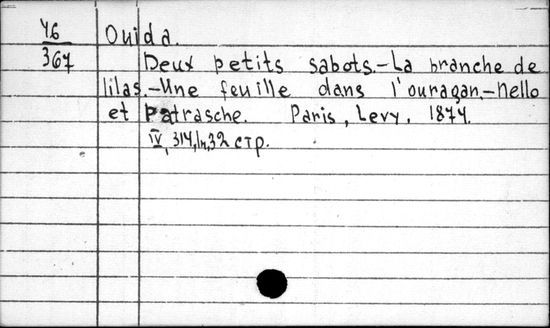 46
367
Ouida.
Deux petits sabots.-La branche de
lilas.-Une feuille dans l'ouragan.-Nello
et Patrasche. Paris, Levy, 1874.
IV, 314, 32 стр.